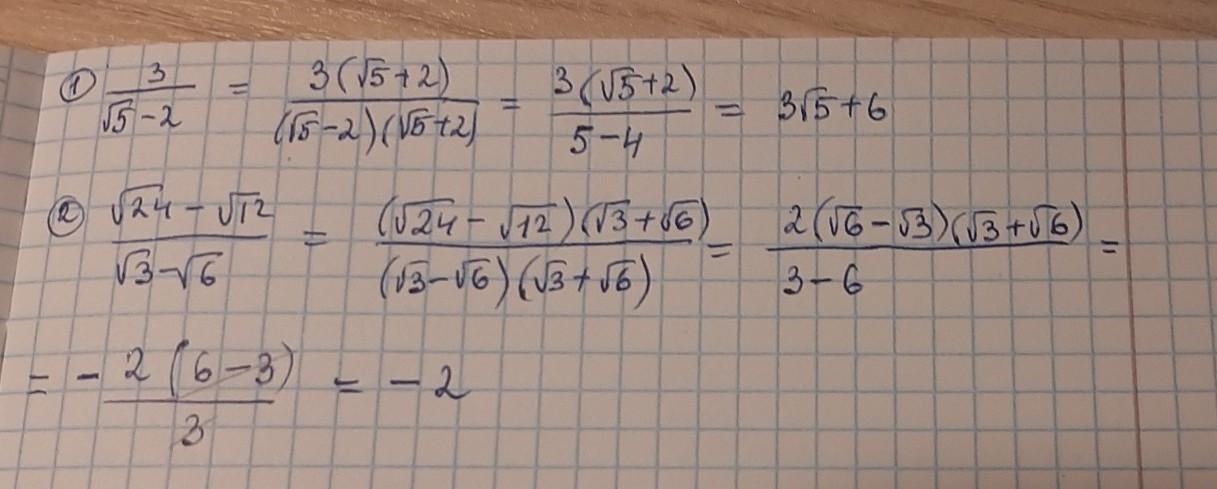 ① 3/(√5-2) = 3(√5+2)/((√5-2)(√5+2)) = 3(√5+2)/(5-4) = 3√5+6
② (√24-√12)/(√3-√6) = (√24-√12)(√3+√6)/((√3-√6)(√3+√6)) = 2(√6-√3)(√3+√6)/(3-6) =
= - 2(6-3)/3 = -2